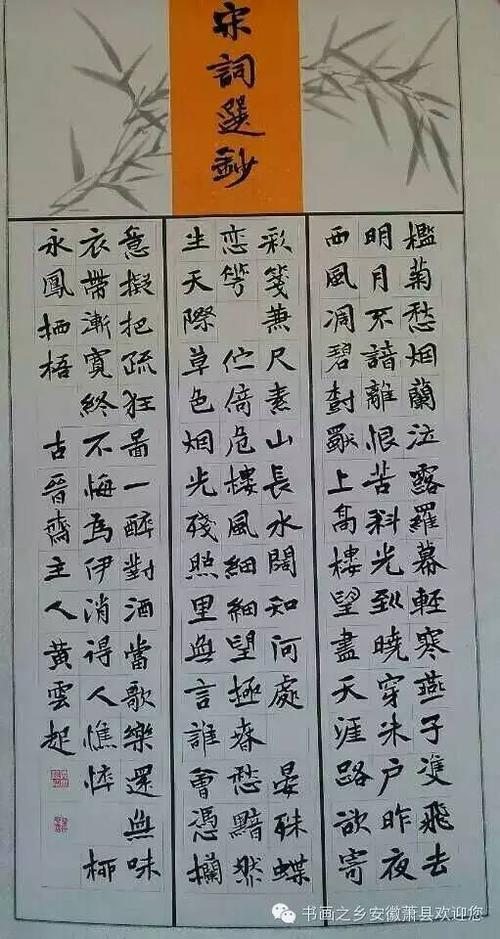 宋詞選鈔
檻菊愁烟蘭泣露羅幕輕寒燕子雙飛去
明月不諳離恨苦斜光到曉穿朱户昨夜
西風凋碧樹獨上高樓望盡天涯路欲寄
彩箋兼尺素山長水闊知何處 晏殊 蝶
恋花 伫倚危樓風細細望極春愁黯然
生天際草色烟光殘照里無言誰會憑欄
意擬把疏狂圖一醉對酒當歌樂還無味
衣帶漸寬終不悔為伊消得人憔悴 柳
永鳳栖梧 古晉齋主人黃雲起
书画之乡安徽萧县欢迎您